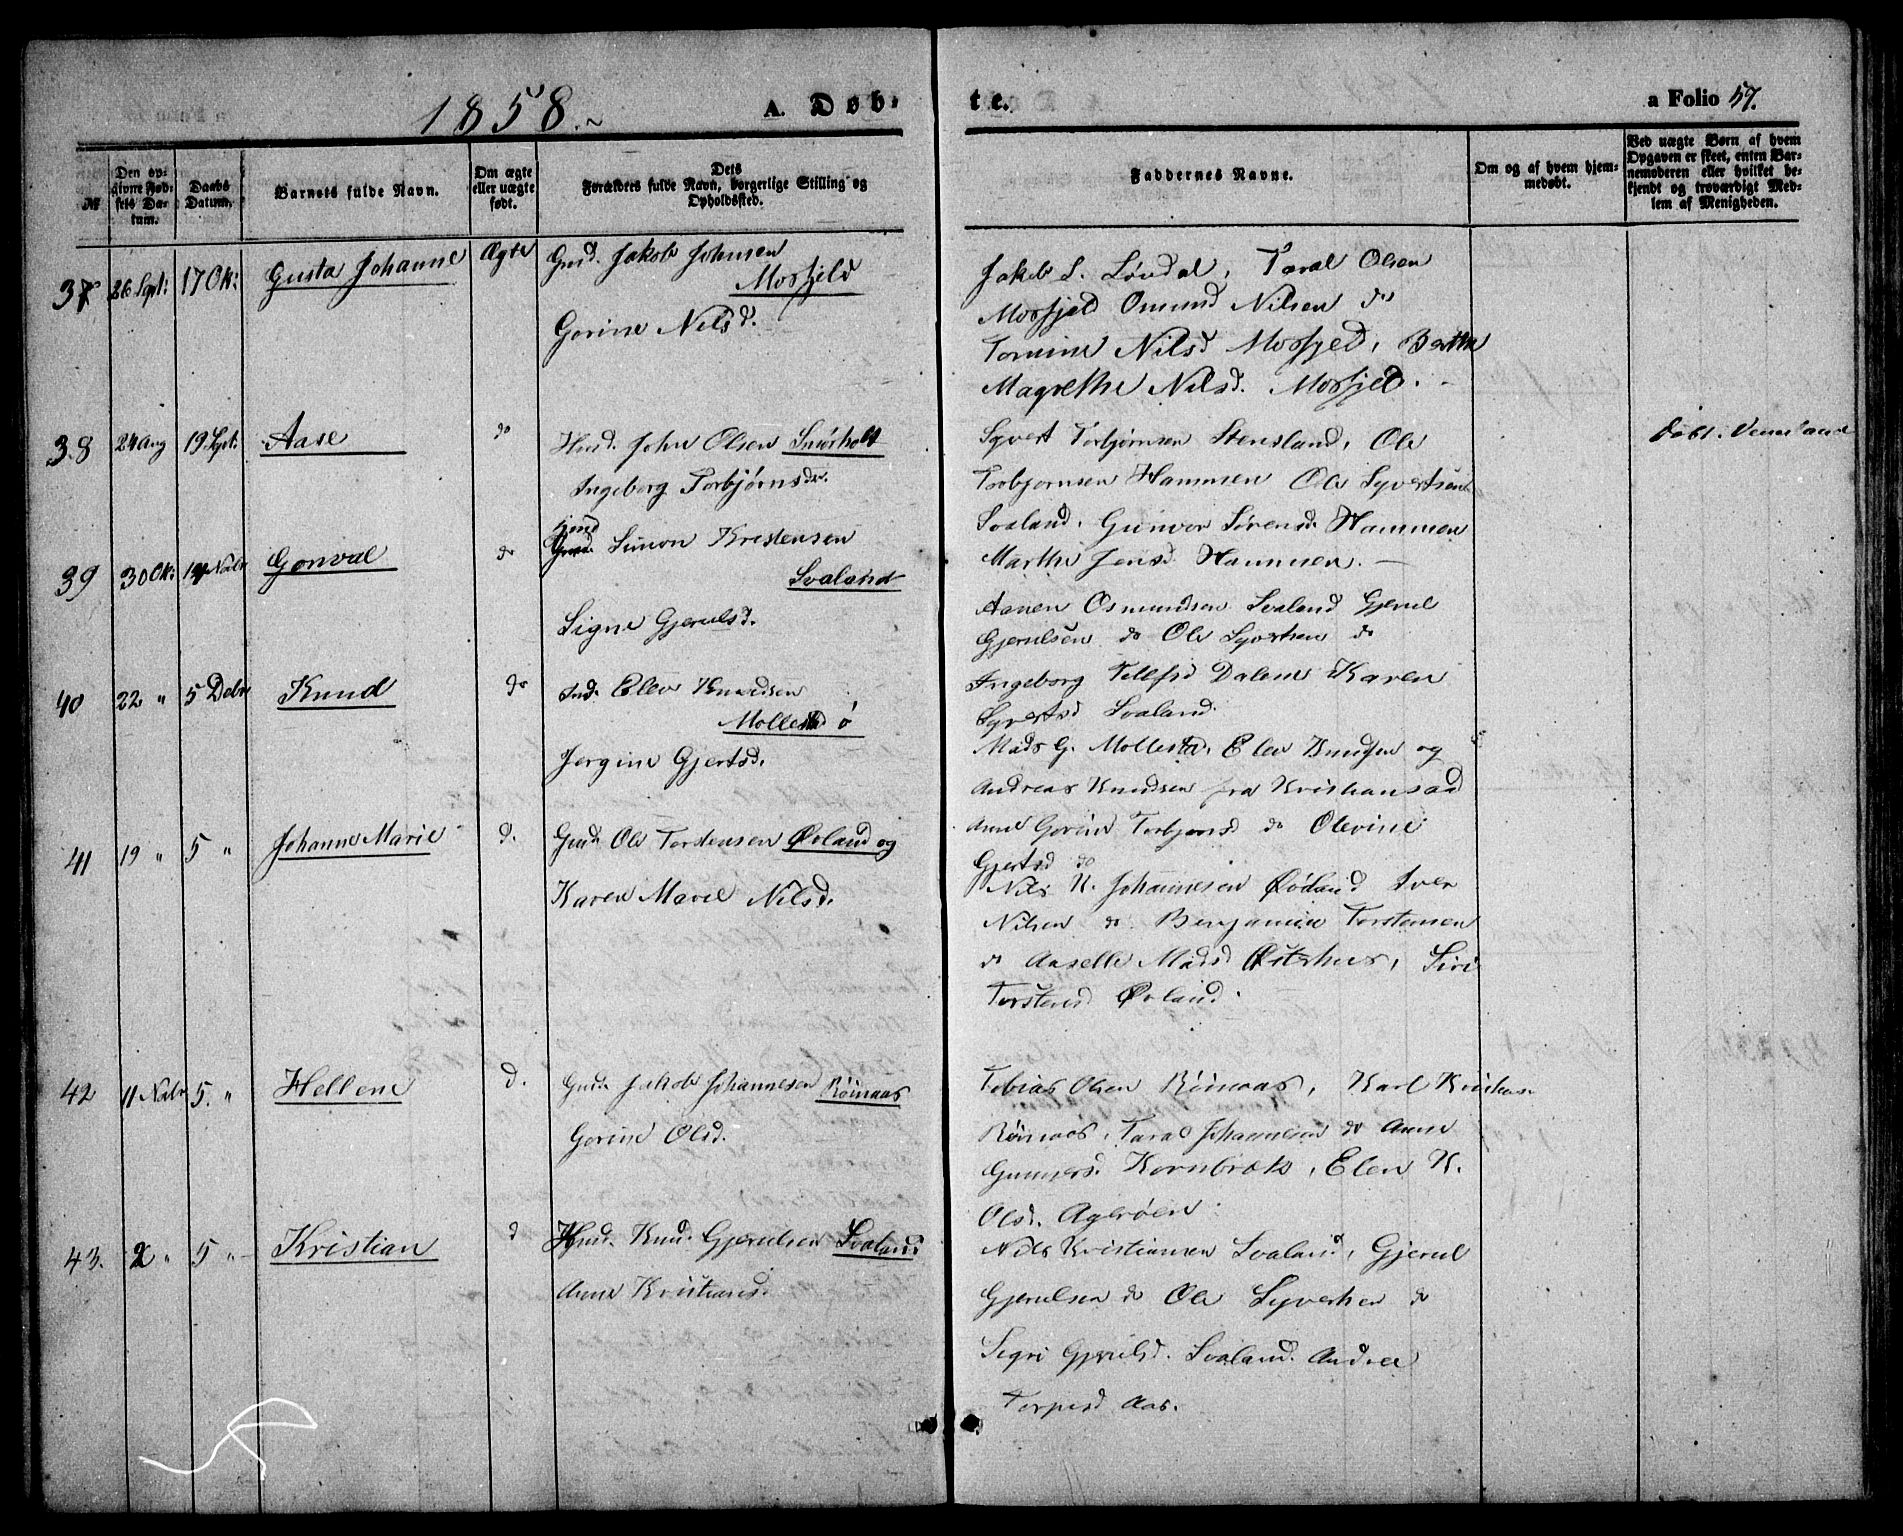 1858.
A. Døb-
te.
a Folio 57.
№
Den opgivne Fødsels Datum.
Daabs Datum.
Barnets fulde Navn.
Om ægte eller uægte født.
Dets Forældres fulde Navn, borgerlige Stilling og Opholdssted.
Faddernes Navne.
Om og af hvem hjemmedøbt.
Ved uægte Børn af hvem Opgaven er skeet, enten Barnemoderen eller hvilket bekjendt og troværdigt Medlem af Menigheden.
37 26 Sept: 17 Ok: Gusta Johanne Ægte Gmd. Jakob Johnsen
Mosfjeld
Gorine Nilsd.
Jakob S. Løvdal, Taral Olsen
Mosfjeld Omund Nilsen do
Tomine Nilsd Mosfjeld, Berthe
Magrethe Nilsd. Mosfjeld. -
38 24 Aug 19 Sept: Aase do Husd. John Olsen Smørholt
Ingeborg Torbjørnsdr.
Syvert Torbjørnsen Stensland, Ole
Torbjørnsen Hammen Ole Syvertsen
Svaland, Gunvor Sørensd Hammen
Marthe Jensd Hammen. -
Døbt. Vennland
39 30 Ok: 14 Nobr Gonval do Simon Kristensen
Svaland
Signe Gjerulsd.
Aanen Osmundsen Svaland Gjerul
Gjerulsen do Ole Syvertsen do
Ingeborg Tellefsd Dalene Karen
Syvertsd Svaland.
40 22 " 5 Debr Knud do Ind. Elev Knudsen
Mollestad ø
Jorgine Gjertsd.
Mads G. Mollestad, Elev Knudsen og
Andreas Knudsen fra Kristiansand
Anne Gorine Torbjørnsd do Olevine
Gjertsd do
41 19 " 5 " Johanne Marie d. Gmd. Ole Torstensen Øvland og
Karen Marie Nilsd.
Nils N. Johannesen Ødland Iver
Nilsen do. Benjamin Torstensen
do Aaselle Madsd Østerhus, Siri
Torstensd Øvland.
42 11 Nobr 5. " Hellene d. Gmd. Jakob Johannesen Røinaas
Gorine Olsd.
Tobias Olsen Røinaas, Karl Kristians
Røinaas, Taral Johannesen do Anne
Gunnersd. Kornbrek, Elen K.
Olsd. Agerøen.
43. 2 " 5 " Kristian d Hsmd. Knud Gjerulsen Svaland
Anne Kristiansd.
Nils Kristiansen Svaland, Gjerul
Gjerulsen do Ole Syvertsen do
Segri Gjerulsd. Svaland. Andrea
Torjusd Aas.